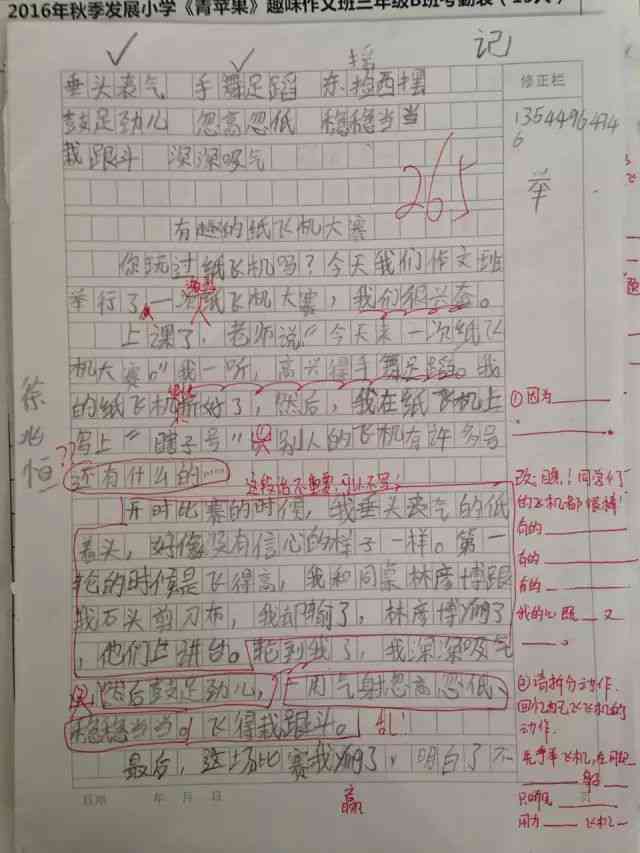 2016年秋季发展小学《青苹果》趣味作文班三年级B班考勤表
记
摇
垂头丧气 手舞足蹈 东捡西摆
修正栏
鼓足劲儿 忽高忽低 稳稳当当
栽跟斗 深深吸气
举
265
有趣的纸飞机大赛
你玩过纸飞机吗？今天我们作文班
举行了一次纸飞机大赛，我们很兴奋。
上课了，老师说“今天来一次纸飞
机大赛。”我一听，高兴得手舞足蹈。我
的纸飞机折好了，然后，我在纸飞机上
写上“瞎子号”①别人的飞机有许多号
还有什么的……
徐兆恒
①因为
这段话不重要，可以不写！
开时比赛的时候，我垂头丧气的低
着头，好像没有信心的样子一样。第一
轮的时候是飞得高，我和同桌林彦博跟
我石头剪刀布，我却输了，林彦博赢了
，他们上讲台。轮到我了，我深深吸气
②然后鼓足劲儿，用气射忽高忽低、
稳稳当当。飞得栽跟斗。乱！
最后，这场比赛我赢了，明白了不
赢
的飞机都很棒！
有的
有的
有的
我的心跳 又
②请拆分动作，
动作.
只听见
用力 飞机一
年 月 日